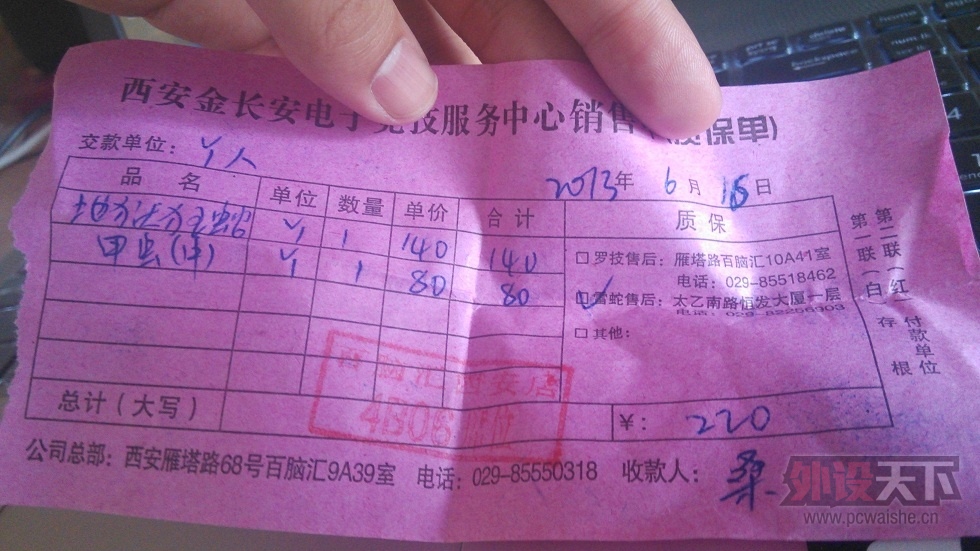 西安金长安电子竞技服务中心销售(质保单)
交款单位：个人
2013年 6月 15日
品名 单位 数量 单价 合计 质保
个 1 140 140
甲虫(中) 个 1 80 80
罗技售后：雁塔路百脑汇10A41室
电话：029-85518462
雷蛇售后：太乙南路恒发大厦一层
电话：029-82256903
其他：
第一联(白)存根
第二联(红)付款单位
百脑汇西安店
4B06
总计(大写) ¥： 220
公司总部：西安雁塔路68号百脑汇9A39室 电话：029-85550318 收款人：桑
外设天下
www.pcwaishe.cn
home
num lk